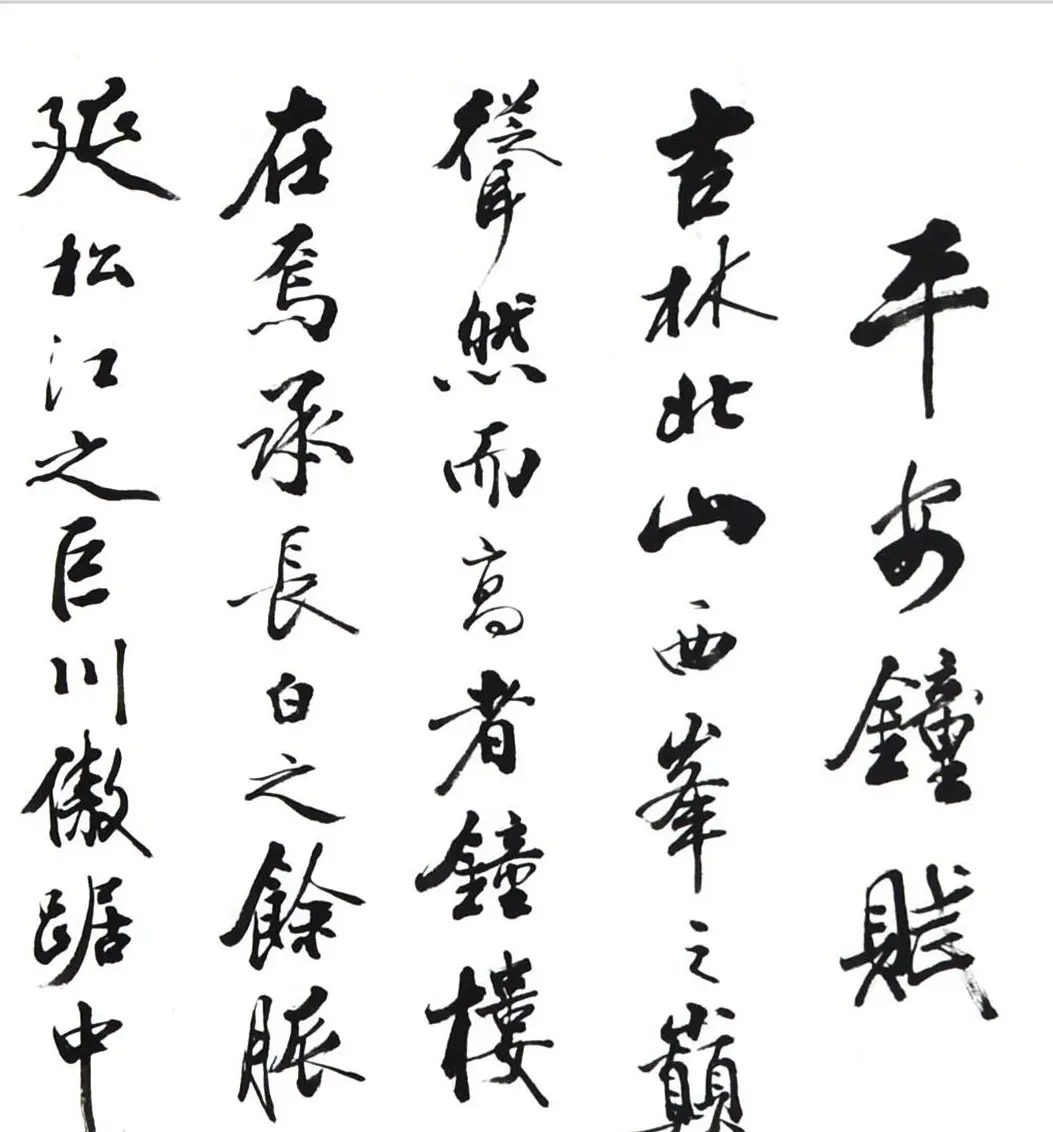 平安鐘賦
吉林北山西峯之巔
聳然而高者鐘樓
在焉承長白之餘脈
延松江之巨川傲踞中